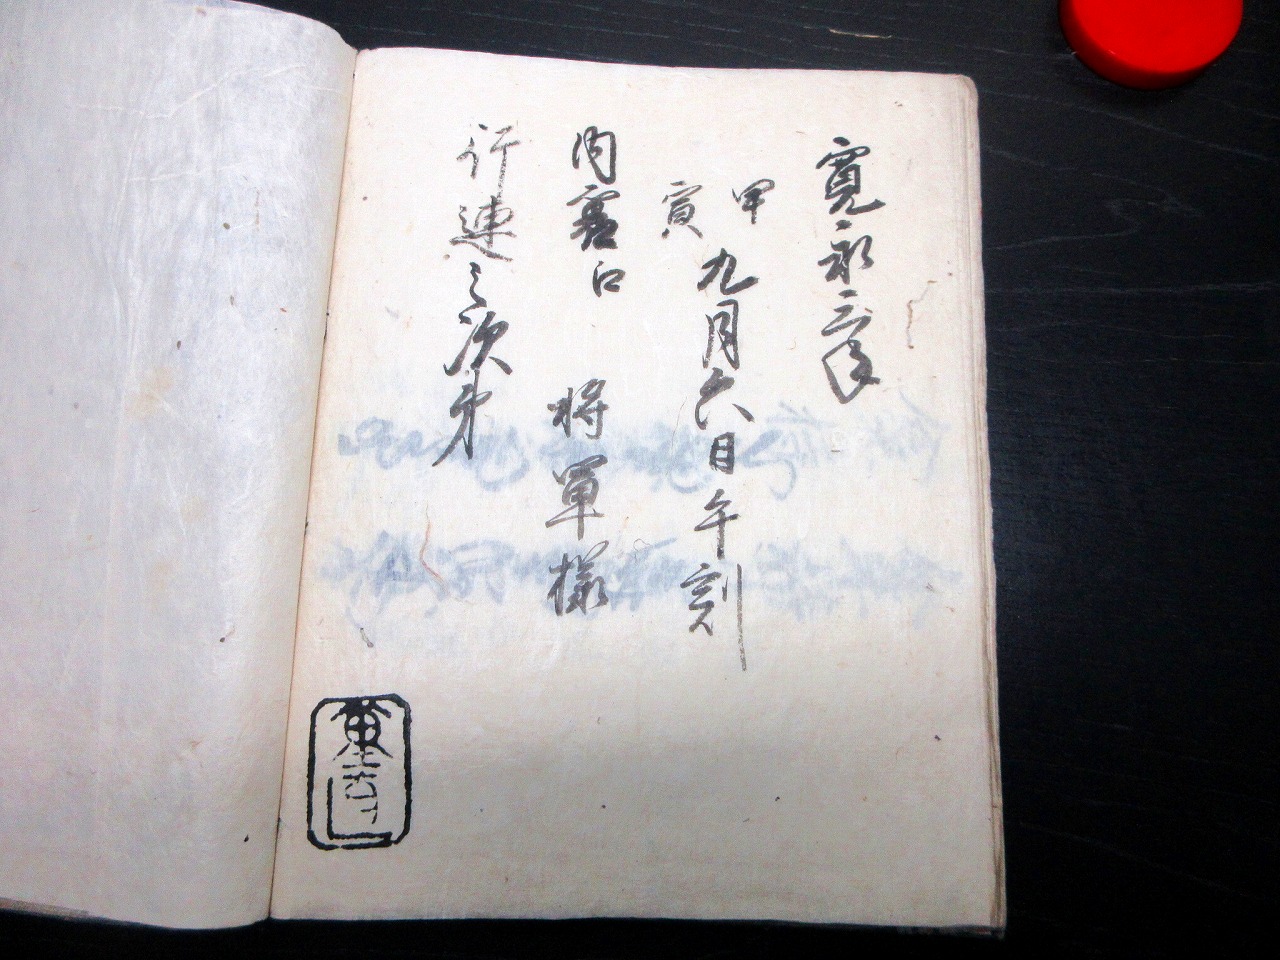 寛永三年
甲寅九月六日午刻
内裏江 将軍様
行連之次第